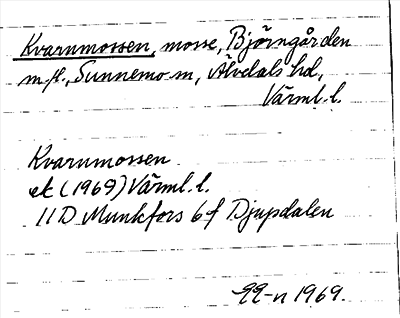 Kvarnmossen, mosse, Björngården
m.fl., Sunnemo sn, Älvdals hd,
Värml. l.
Kvarnmossen
ek (1969) Värml. l.
11D Munkfors 6f Djupdalen
1969.